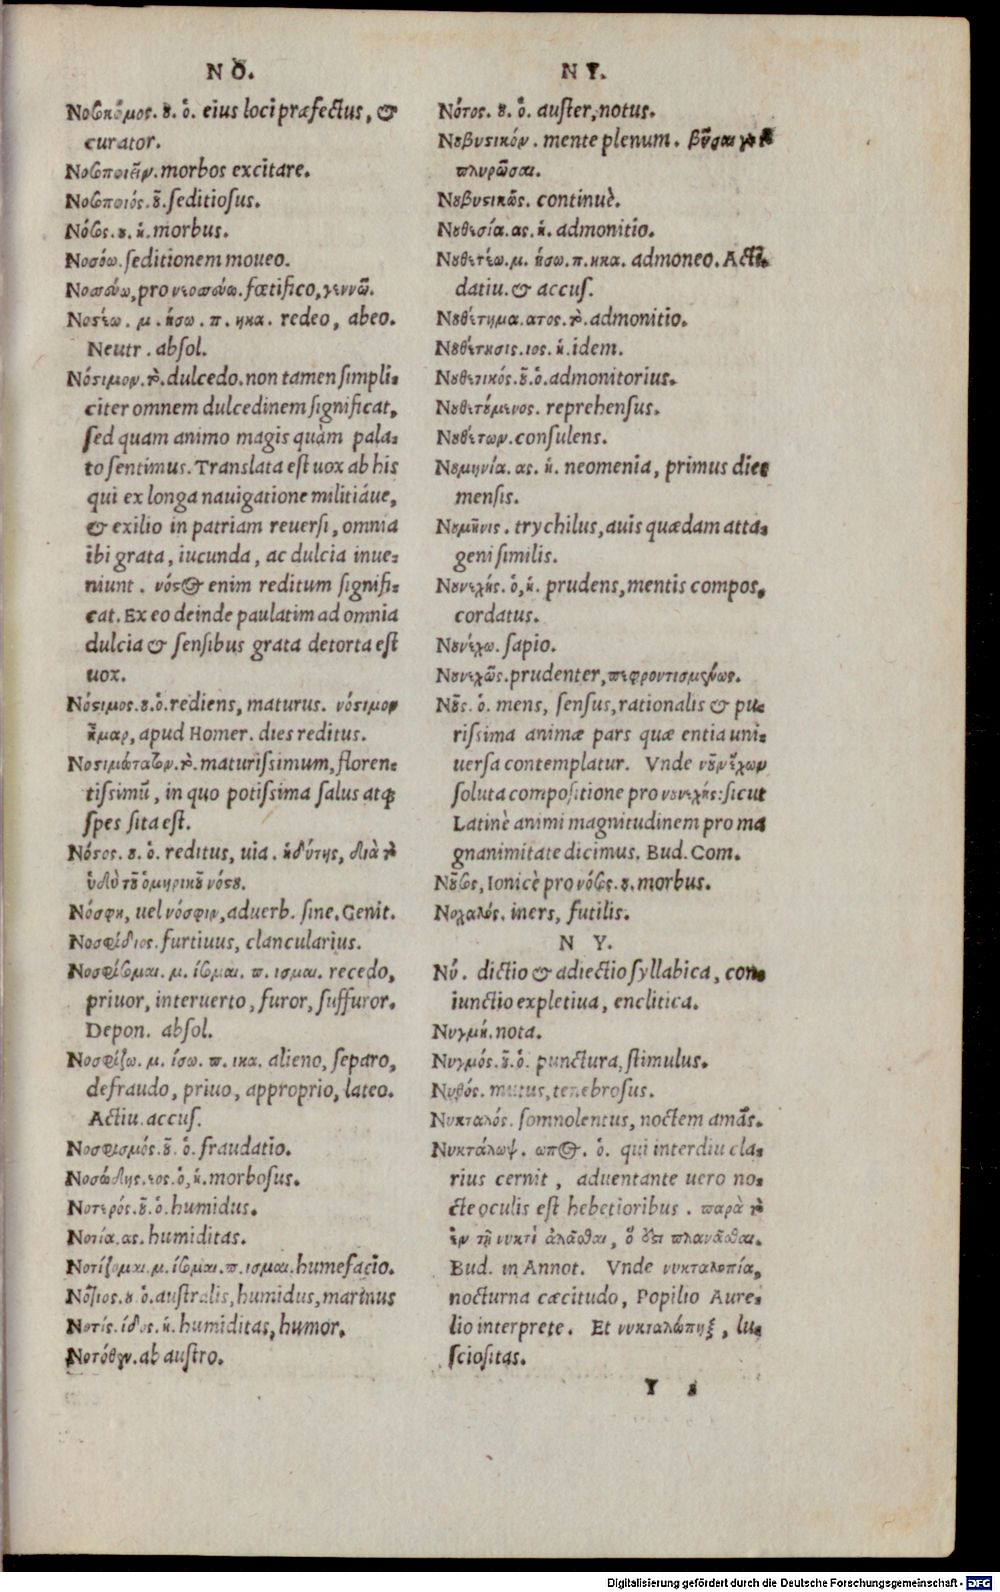 N O.
Νοσοκόμος. ου. ὁ. eius loci præfectus, &
curator.
Νοσοποιεῖν. morbos excitare.
Νοσοποιός. οῦ. seditiosus.
Νόσος. ου. ἡ. morbus.
Νοσόω. seditionem moueo.
Νοσσεύω, pro νεοσσεύω. fœtifico, γεννῶ.
Νοστέω. μ. ήσω. π. ηκα. redeo, abeo.
Neutr. absol.
Νόστιμον. τὸ. dulcedo. non tamen simpli-
citer omnem dulcedinem significat,
sed quam animo magis quàm pala-
to sentimus. Translata est uox ab his
qui ex longa nauigatione militiáue,
& exilio in patriam reuersi, omnia
ibi grata, iucunda, ac dulcia inue-
niunt. νόστος enim reditum signifi-
cat. Ex eo deinde paulatim ad omnia
dulcia & sensibus grata detorta est
uox.
Νόστιμος. ου. ὁ. rediens, maturus. νόστιμον
ἦμαρ, apud Homer. dies reditus.
Νοστιμώτατον. τὸ. maturissimum, floren-
tissimū, in quo potissima salus atq;
spes sita est.
Νόστος. ου. ὁ. reditus, uia. ἡδύτης, διὰ τὸ
ἡδὺ τοῦ ὁμηρικοῦ νόστου.
Νόσφη, uel νόσφιν, aduerb. sine. Genit.
Νοσφίδιος. furtiuus, clancularius.
Νοσφίζομαι. μ. ίσομαι. π. ισμαι. recedo,
priuor, interuerto, furor, suffuror.
Depon. absol.
Νοσφίζω. μ. ίσω. π. ικα. alieno, separo,
defraudo, priuo, approprio, lateo.
Actiu. accus.
Νοσφισμός. οῦ. ὁ. fraudatio.
Νοσώδης. εος. ὁ, ἡ. morbosus.
Νοτερός. οῦ. ὁ. humidus.
Νοτία. ας. humiditas.
Νοτίζομαι. μ. ίσομαι. π. ισμαι. humefacio.
Νότιος. ου. ὁ. australis, humidus, marinus
Νοτίς. ίδος. ἡ. humiditas, humor.
Νοτόθεν. ab austro.
N Y.
Νότος. ου. ὁ. auster, notus.
Νουβυστικόν. mente plenum. βῦσαι
πληρῶσαι.
Νουβυστικῶς. continuè.
Νουθεσία. ας. ἡ. admonitio.
Νουθετέω. μ. ήσω. π. ηκα. admoneo. Acti.
datiu. & accus.
Νουθέτημα. ατος. τὸ. admonitio.
Νουθέτησις. ιος. ἡ. idem.
Νουθετικός. οῦ. ὁ. admonitorius.
Νουθετούμενος. reprehensus.
Νουθέτων. consulens.
Νουμηνία. ας. ἡ. neomenia, primus dies
mensis.
Νουμήνις. trychilus, auis quædam atta-
geni similis.
Νουνεχής. ὁ, ἡ. prudens, mentis compos,
cordatus.
Νουνέχω. sapio.
Νουνεχῶς. prudenter, πεφροντισμένως.
Νοῦς. ὁ. mens, sensus, rationalis & pu-
rissima animæ pars quæ entia uni-
uersa contemplatur. Vnde νοῦν ἔχων
soluta compositione pro νουνεχής: sicut
Latinè animi magnitudinem pro ma
gnanimitate dicimus. Bud. Com.
Νοῦσος, Ionicè pro νόσος. ου. morbus.
Νοχαλός. iners, futilis.
N Y.
Νύ. dictio & adiectio syllabica, con-
iunctio expletiua, enclitica.
Νυγμή. nota.
Νυγμός. οῦ. ὁ. punctura, stimulus.
Νυθός. mutus, tenebrosus.
Νυκταλός. somnolentus, noctem amās.
Νυκτάλωψ. ωπος. ὁ. qui interdiu cla-
rius cernit, aduentante uero no-
cte oculis est hebetioribus. παρὰ τὸ
ἐν τῇ νυκτὶ ἀλᾶσθαι, ὅ ἐστι πλανᾶσθαι.
Bud. in Annot. Vnde νυκταλοπία,
nocturna cæcitudo, Popilio Aure-
lio interprete. Et νυκταλώπηξ, lu-
sciositas.
Y 2
Digitalisierung gefördert durch die Deutsche Forschungsgemeinschaft - DFG